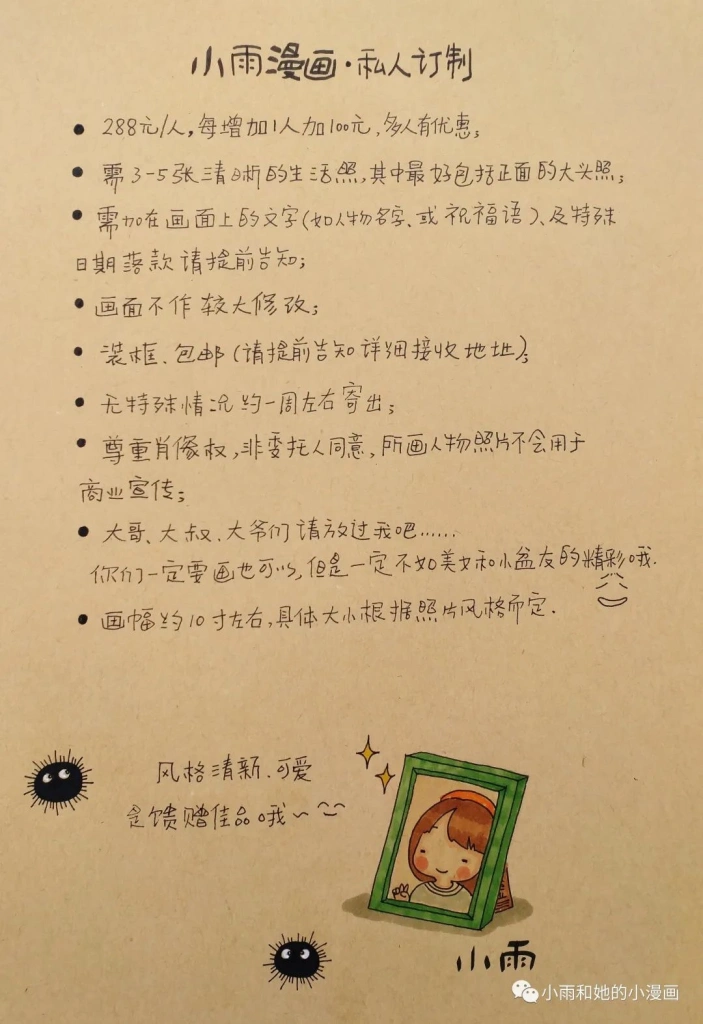 小雨漫画·私人订制
288元/人,每增加1人加100元,多人有优惠;
需3-5张清晰的生活照,其中最好包括正面的大头照;
需加在画面上的文字(如人物名字、或祝福语)、及特殊
日期落款请提前告知;
画面不作较大修改;
装框、包邮(请提前告知详细接收地址);
无特殊情况约一周左右寄出;
尊重肖像权,非委托人同意,所画人物照片不会用于
商业宣传;
大哥、大叔、大爷们请放过我吧……
你们一定要画也可以,但是一定不如美女和小盆友的精彩哦.
画幅约10寸左右,具体大小根据照片风格而定.
风格清新、可爱
是馈赠佳品哦~
小雨
小雨和她的小漫画